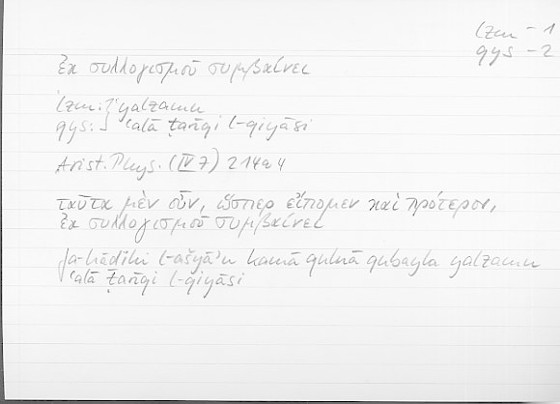 lzm – 1
qys – 2
ἐκ συλλογισμοῦ συμβαίνει
lzm: } yalzamu
qys: } ʿalā ṭarīqi l-qiyāsi
Arist. Phys. (IV 7) 214a4
ταῦτα μὲν οὖν, ὥσπερ εἴπομεν καὶ πρότερον,
ἐκ συλλογισμοῦ συμβαίνει
fa-hāḏihi l-ašyāʾu kamā qulnā qubayla yalzamu
ʿalā ṭarīqi l-qiyāsi